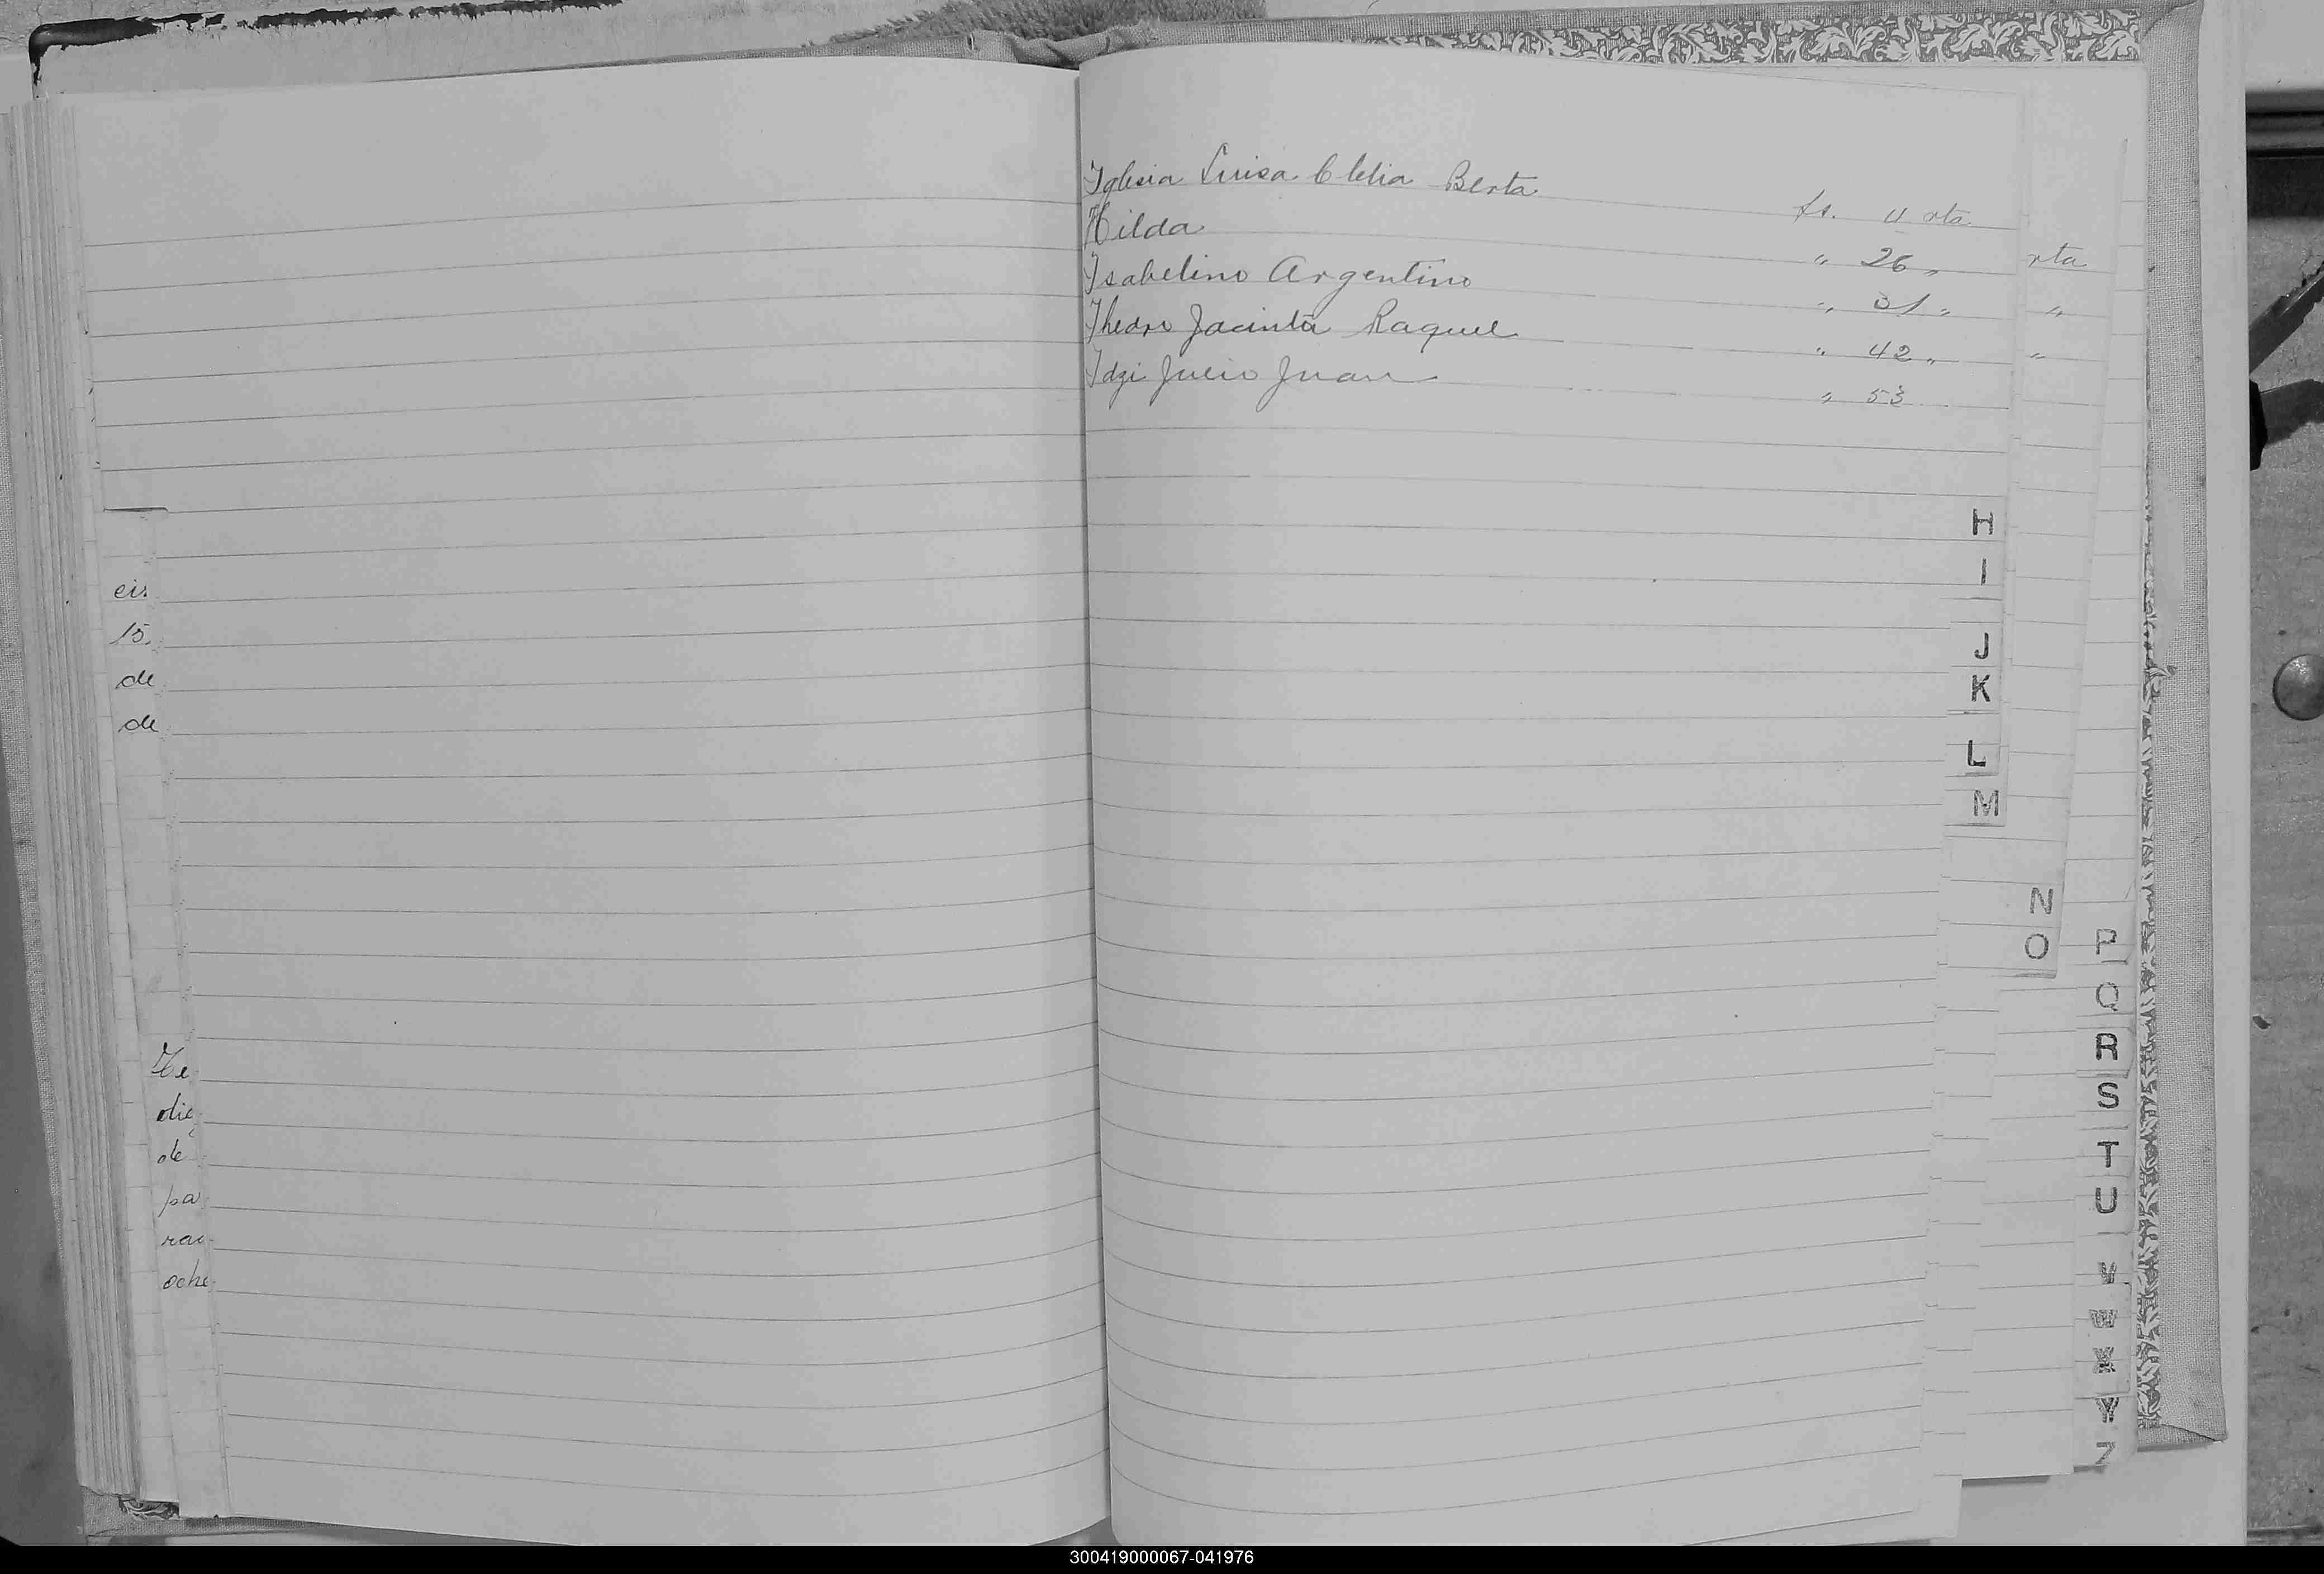 eis
15.
de
de
He
die
de
pa
rai
oche
Iglesia Luisa Clelia Berta
Hilda fs. 11 vta
Isabelino Argentino " 26 "
Jacinta Raquel " 31 "
Idzi Julio Juan " 42 "
" 53
vta
"
"
H
I
J
K
L
M
N
O
P
Q
R
S
T
U
V
W
X
Y
Z
300419000067-041976